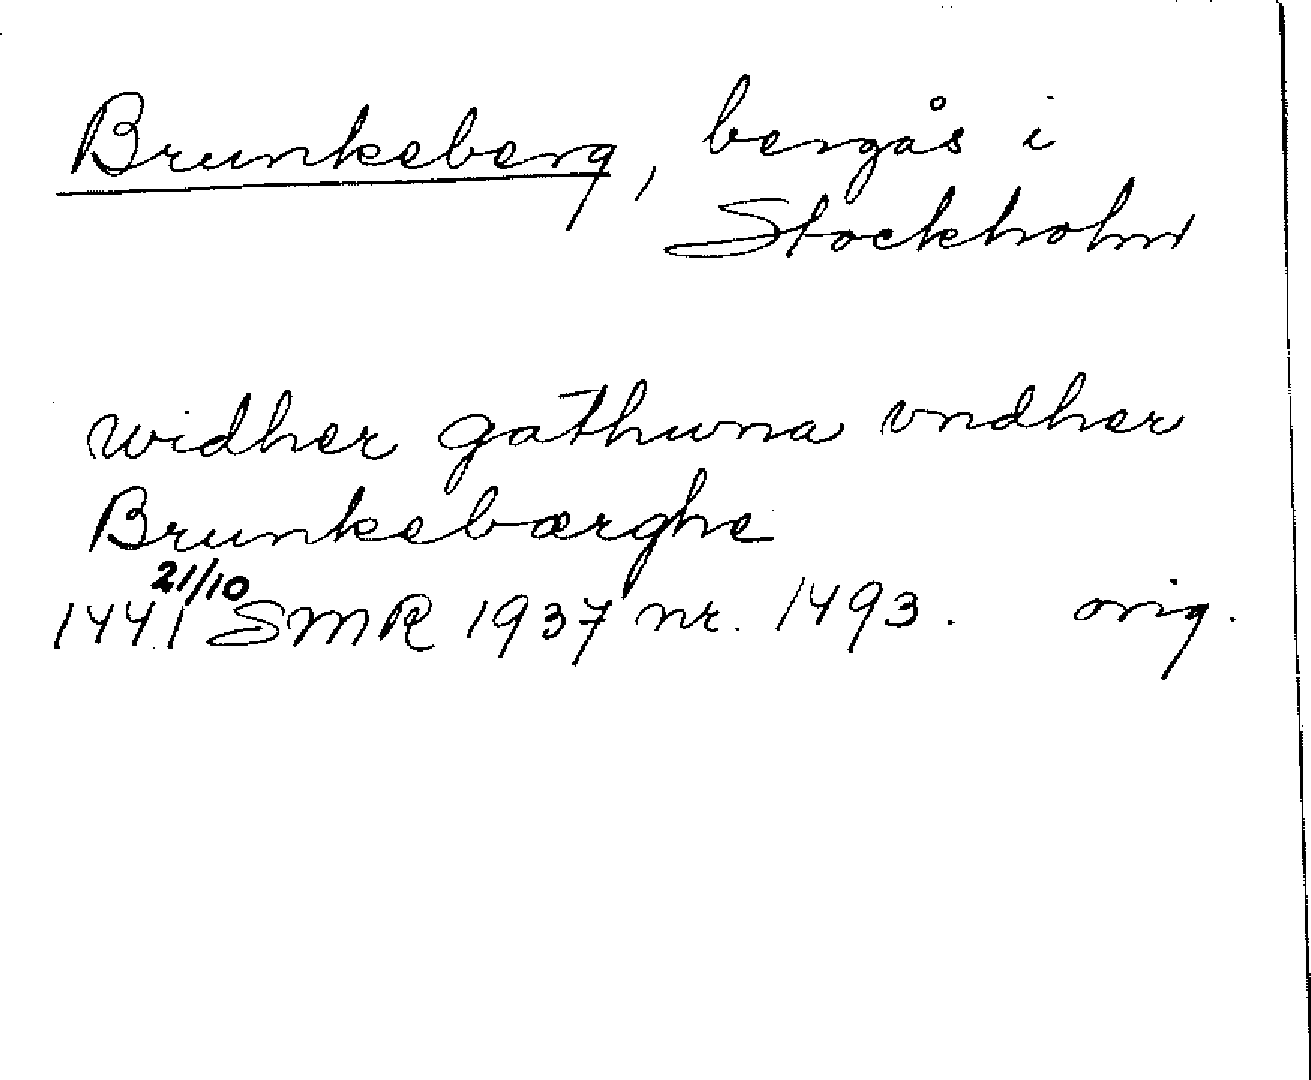 Brunkeberg, bergås i
Stockholm
widher gathuna vndher
Brunkebærghe
21/10
1441 SMR 1937 nr. 1493. orig.